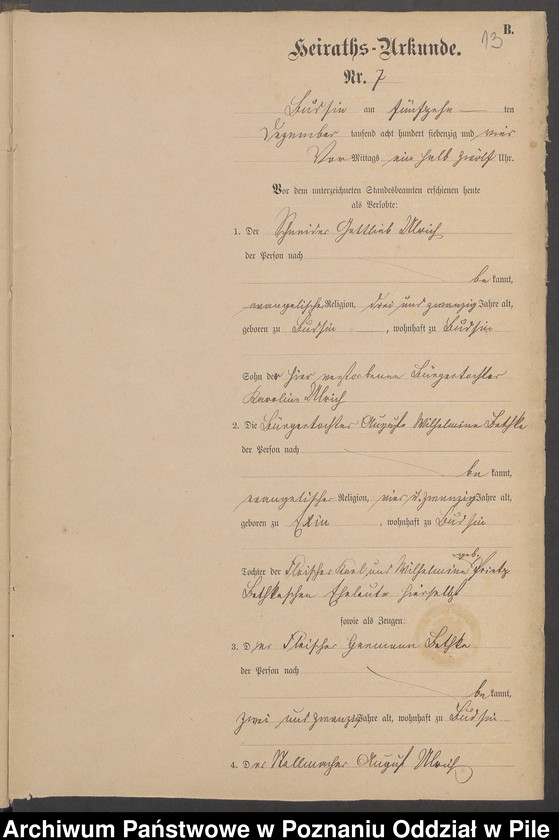 B.
13
Heiraths-Urkunde.
Nr. 7
Budsin am fünfzehn ten
Dezember tausend acht hundert siebenzig und vier
Vor Mittags ein halb zwölf Uhr.
Vor dem unterzeichneten Standesbeamten erschienen heute
als Verlobte:
1. Der Schneider Gottlieb Ulrich
der Person nach
be kannt,
evangelischer Religion, drei und zwanzig Jahre alt,
geboren zu Budsin, wohnhaft zu Budsin
Sohn der hier verstorbenen Bürgertochter
Karoline Ulrich
2. Die Bürgertochter Auguste Wilhelmine Bethke
der Person nach
be kannt,
evangelischer Religion, vier u. zwanzig Jahre alt,
geboren zu Exin, wohnhaft zu Budsin
geb.
Tochter der Fleischer Karl und Wilhelmine Prietz
Bethkeschen Eheleute hierselbst
sowie als Zeugen:
3. Der Fleischer Hermann Bethke
der Person nach
be kannt,
zwei und zwanzig Jahre alt, wohnhaft zu Budsin
4. Der Stellmacher August Ulrich
Archiwum Państwowe w Poznaniu Oddział w Pile